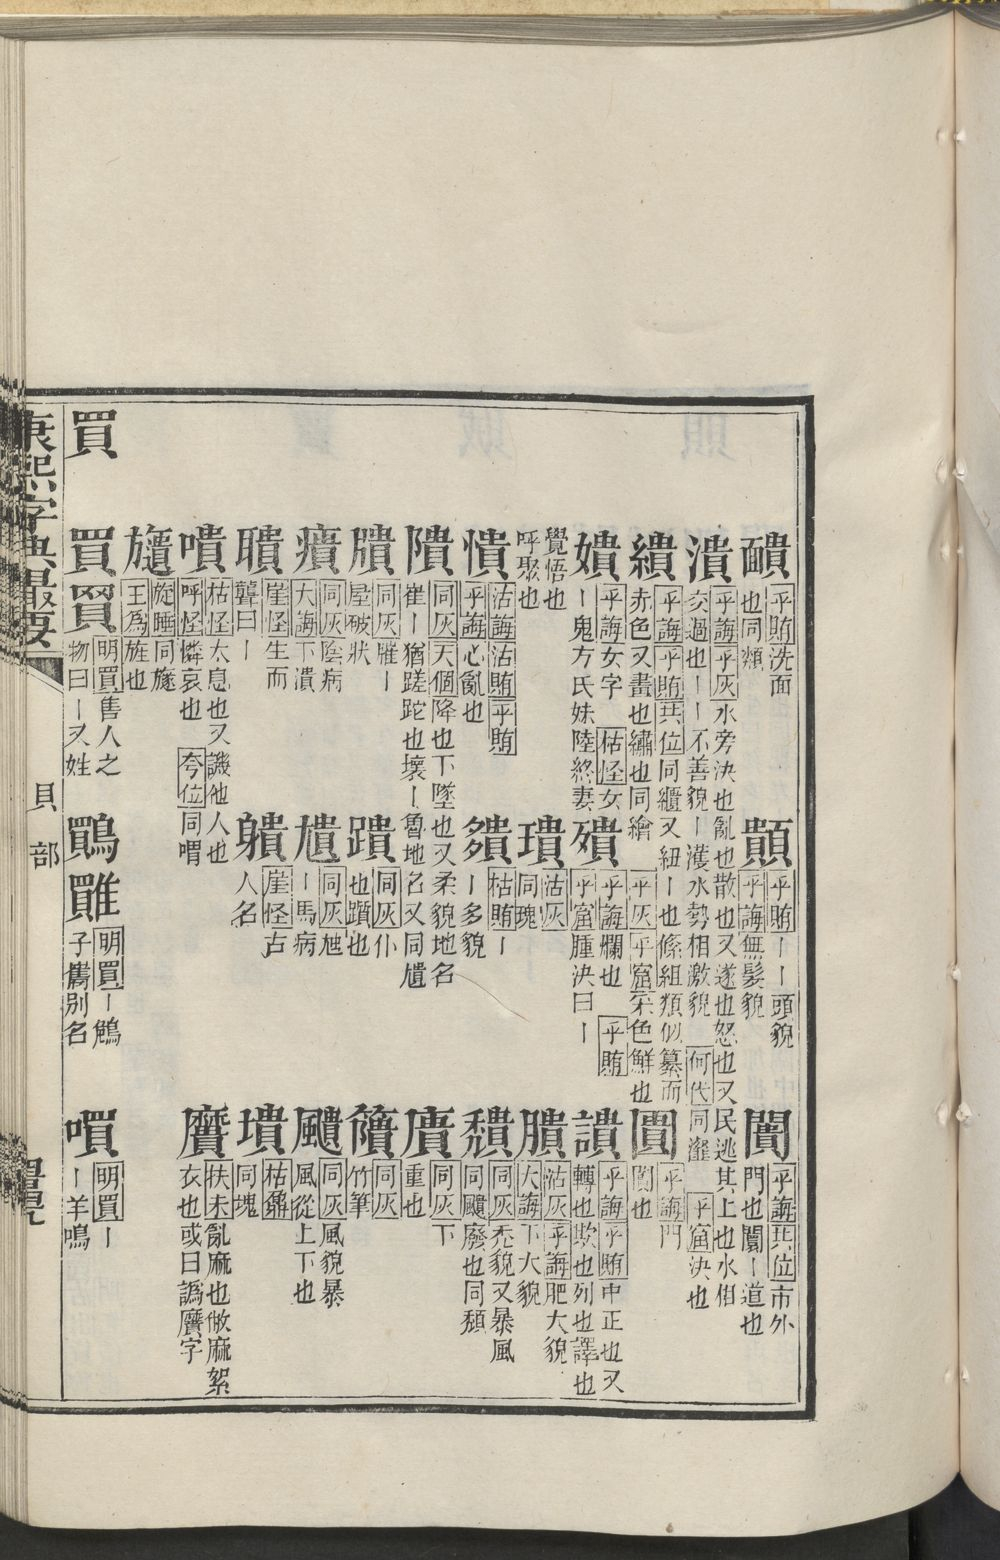 䩌平賄洗面也同類
顝平賄丨丨頭貌平誨無髮貌
闠平誨其位市外門也闤丨道也
潰平誨平灰水旁決也亂也散也又遂也怒也又民逃其上也水相交過也丨丨不善貌丨濩水勢相激貌何代同瀣平窟決也
繢平誨平賄其位同繣又紐丨也絛組類似纂而赤色又畫也繡也同繪平灰平窟采色鮮也
圚平誨門闠也
嬇平誨女字枯怪女丨鬼方氏妹陸終妻
殨平誨爛也平賄平窟腫決曰丨
讃平誨平賄中正也又轉也欺也列也譯也覺悟也呼聚也
璝沽灰同瑰
膭沽灰平誨肥大貌大誨下大貌
憒沽誨沽賄平賄平誨心亂也
䝿枯賄丨丨多貌
穨同灰禿貌又暴風同飉廢也同頹
隤同灰天個降也下墜也又柔貌地名崔丨猶蹉跎也壞丨魯地名又同尵
㢈同灰下重也
䐴同灰雁丨屋破狀
蹪同灰仆也躓也
籄同灰竹筆
㿉同灰陰病大誨下潰
尵同灰尳丨馬病
飉同灰風貌暴風從上下也
聵崖怪生而聾曰丨
䠿崖怪古人名
墤枯龜同塊
嘳枯怪太息也又譏他人也呼怪憐哀也夸位同喟
黂扶未亂麻也敝麻絮衣也或曰譌黂字
旞旋睡同旞王爲旌也
買
買䝨明買售人之物曰丨又姓
鷶䨿明買丨鵃子雟別名
嘪明買丨丨羊鳴
康熙字典撮要
貝部